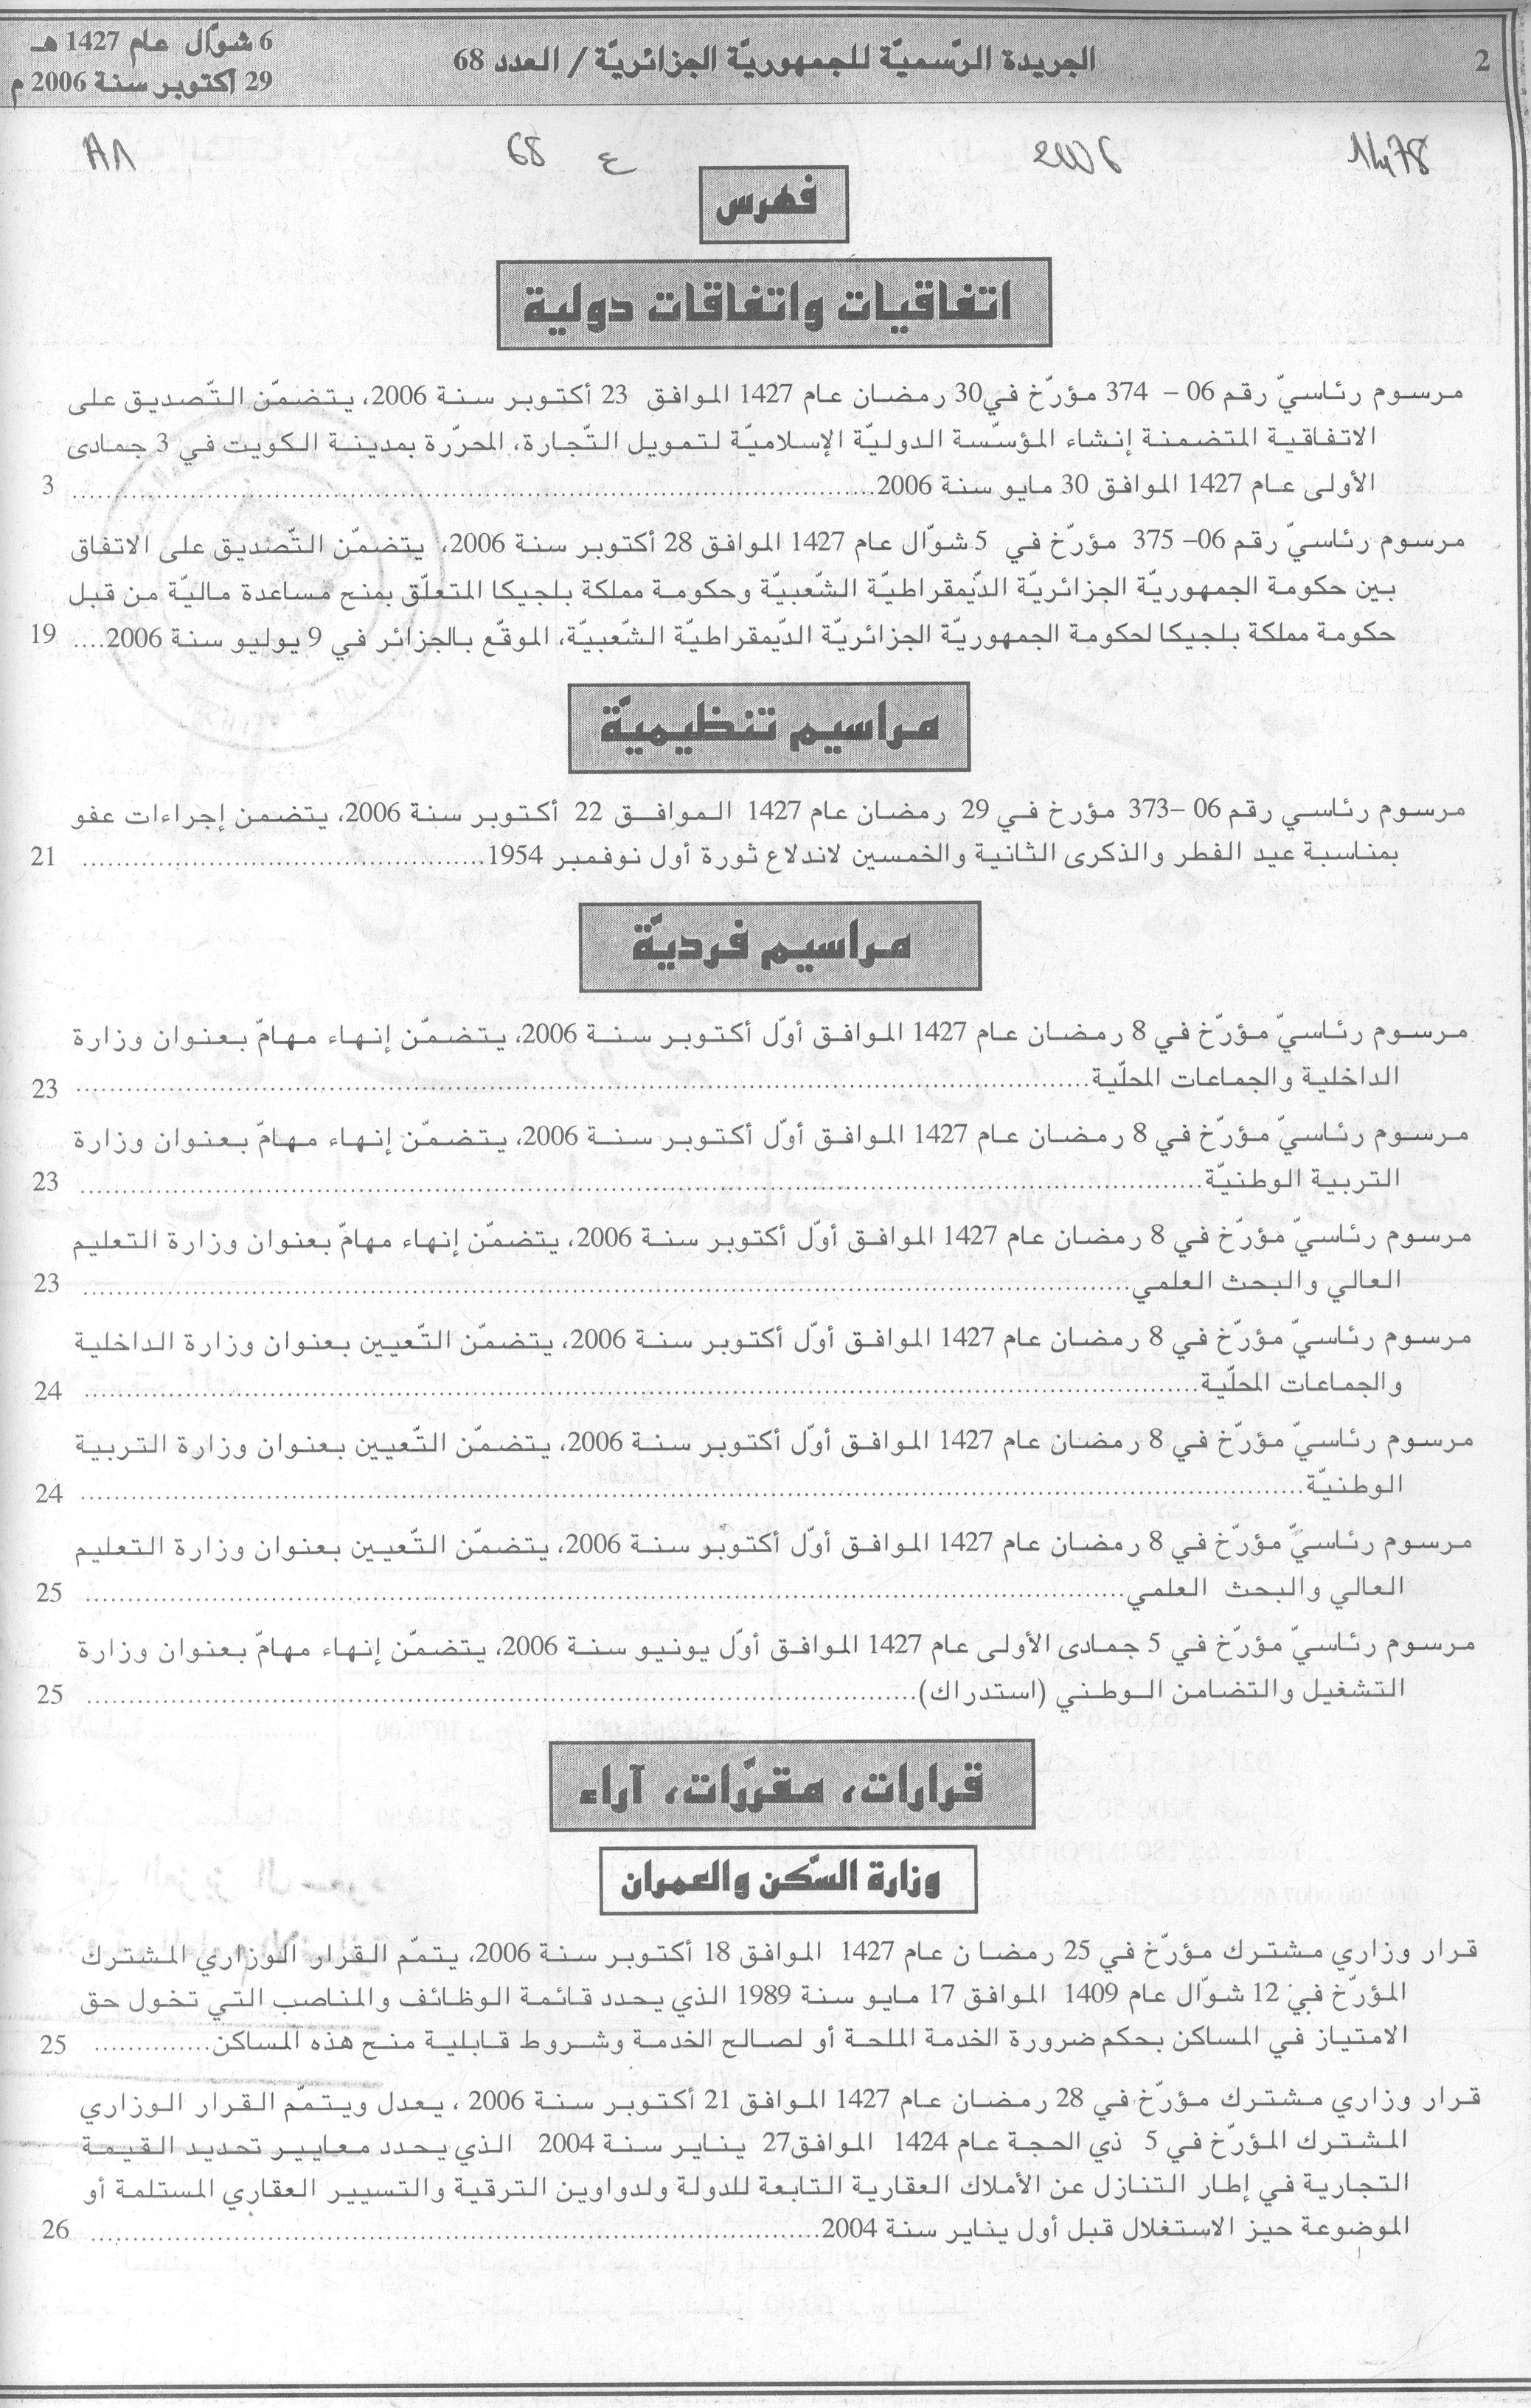 2
الجريدة الرّسميّة للجمهوريّة الجزائريّة / العدد 68
6 شوّال عام 1427 هـ
29 أكتوبر سنة 2006 م
1478
2006
ع 68
A1
فهرس
اتفاقيات واتفاقات دولية
مرسوم رئاسيّ رقم 06 – 374 مؤرّخ في 30 رمضان عام 1427 الموافق 23 أكتوبر سنة 2006، يتضمّن التّصديق على
الاتفاقية المتضمنة إنشاء المؤسّسة الدوليّة الإسلاميّة لتمويل التّجارة، المحرّرة بمدينة الكويت في 3 جمادى
الأولى عام 1427 الموافق 30 مايو سنة 2006........ 3
مرسوم رئاسيّ رقم 06– 375 مؤرّخ في 5 شوّال عام 1427 الموافق 28 أكتوبر سنة 2006، يتضمّن التّصديق على الاتفاق
بين حكومة الجمهوريّة الجزائريّة الدّيمقراطيّة الشّعبيّة وحكومة مملكة بلجيكا المتعلّق بمنح مساعدة ماليّة من قبل
حكومة مملكة بلجيكا لحكومة الجمهوريّة الجزائريّة الدّيمقراطيّة الشّعبيّة، الموقّع بالجزائر في 9 يوليو سنة 2006.... 19
مراسيم تنظيميّة
مرسوم رئاسي رقم 06 –373 مؤرخ في 29 رمضان عام 1427 الموافق 22 أكتوبر سنة 2006، يتضمن إجراءات عفو
بمناسبة عيد الفطر والذكرى الثانية والخمسين لاندلاع ثورة أول نوفمبر 1954........ 21
مراسيم فرديّة
مرسوم رئاسيّ مؤرّخ في 8 رمضان عام 1427 الموافق أوّل أكتوبر سنة 2006، يتضمّن إنهاء مهامّ بعنوان وزارة
الداخلية والجماعات المحلّية........ 23
مرسوم رئاسيّ مؤرّخ في 8 رمضان عام 1427 الموافق أوّل أكتوبر سنة 2006، يتضمّن إنهاء مهامّ بعنوان وزارة
التربية الوطنيّة........ 23
مرسوم رئاسيّ مؤرّخ في 8 رمضان عام 1427 الموافق أوّل أكتوبر سنة 2006، يتضمّن إنهاء مهامّ بعنوان وزارة التعليم
العالي والبحث العلمي........ 23
مرسوم رئاسيّ مؤرّخ في 8 رمضان عام 1427 الموافق أوّل أكتوبر سنة 2006، يتضمّن التّعيين بعنوان وزارة الداخلية
والجماعات المحلّية........ 24
مرسوم رئاسيّ مؤرّخ في 8 رمضان عام 1427 الموافق أوّل أكتوبر سنة 2006، يتضمّن التّعيين بعنوان وزارة التربية
الوطنيّة........ 24
مرسوم رئاسيّ مؤرّخ في 8 رمضان عام 1427 الموافق أوّل أكتوبر سنة 2006، يتضمّن التّعيين بعنوان وزارة التعليم
العالي والبحث العلمي........ 25
مرسوم رئاسيّ مؤرّخ في 5 جمادى الأولى عام 1427 الموافق أوّل يونيو سنة 2006، يتضمّن إنهاء مهامّ بعنوان وزارة
التشغيل والتضامن الوطني (استدراك)........ 25
قرارات، مقرّرات، آراء
وزارة السّكن والعمران
قرار وزاري مشترك مؤرّخ في 25 رمضان عام 1427 الموافق 18 أكتوبر سنة 2006، يتمّم القرار الوزاري المشترك
المؤرّخ في 12 شوّال عام 1409 الموافق 17 مايو سنة 1989 الذي يحدد قائمة الوظائف والمناصب التي تخول حق
الامتياز في المساكن بحكم ضرورة الخدمة الملحة أو لصالح الخدمة وشروط قابلية منح هذه المساكن........ 25
قرار وزاري مشترك مؤرّخ في 28 رمضان عام 1427 الموافق 21 أكتوبر سنة 2006 ، يعدل ويتمّم القرار الوزاري
المشترك المؤرّخ في 5 ذي الحجة عام 1424 الموافق27 يناير سنة 2004 الذي يحدد معايير تحديد القيمة
التجارية في إطار التنازل عن الأملاك العقارية التابعة للدولة ولدواوين الترقية والتسيير العقاري المستلمة أو
الموضوعة حيز الاستغلال قبل أول يناير سنة 2004........ 26